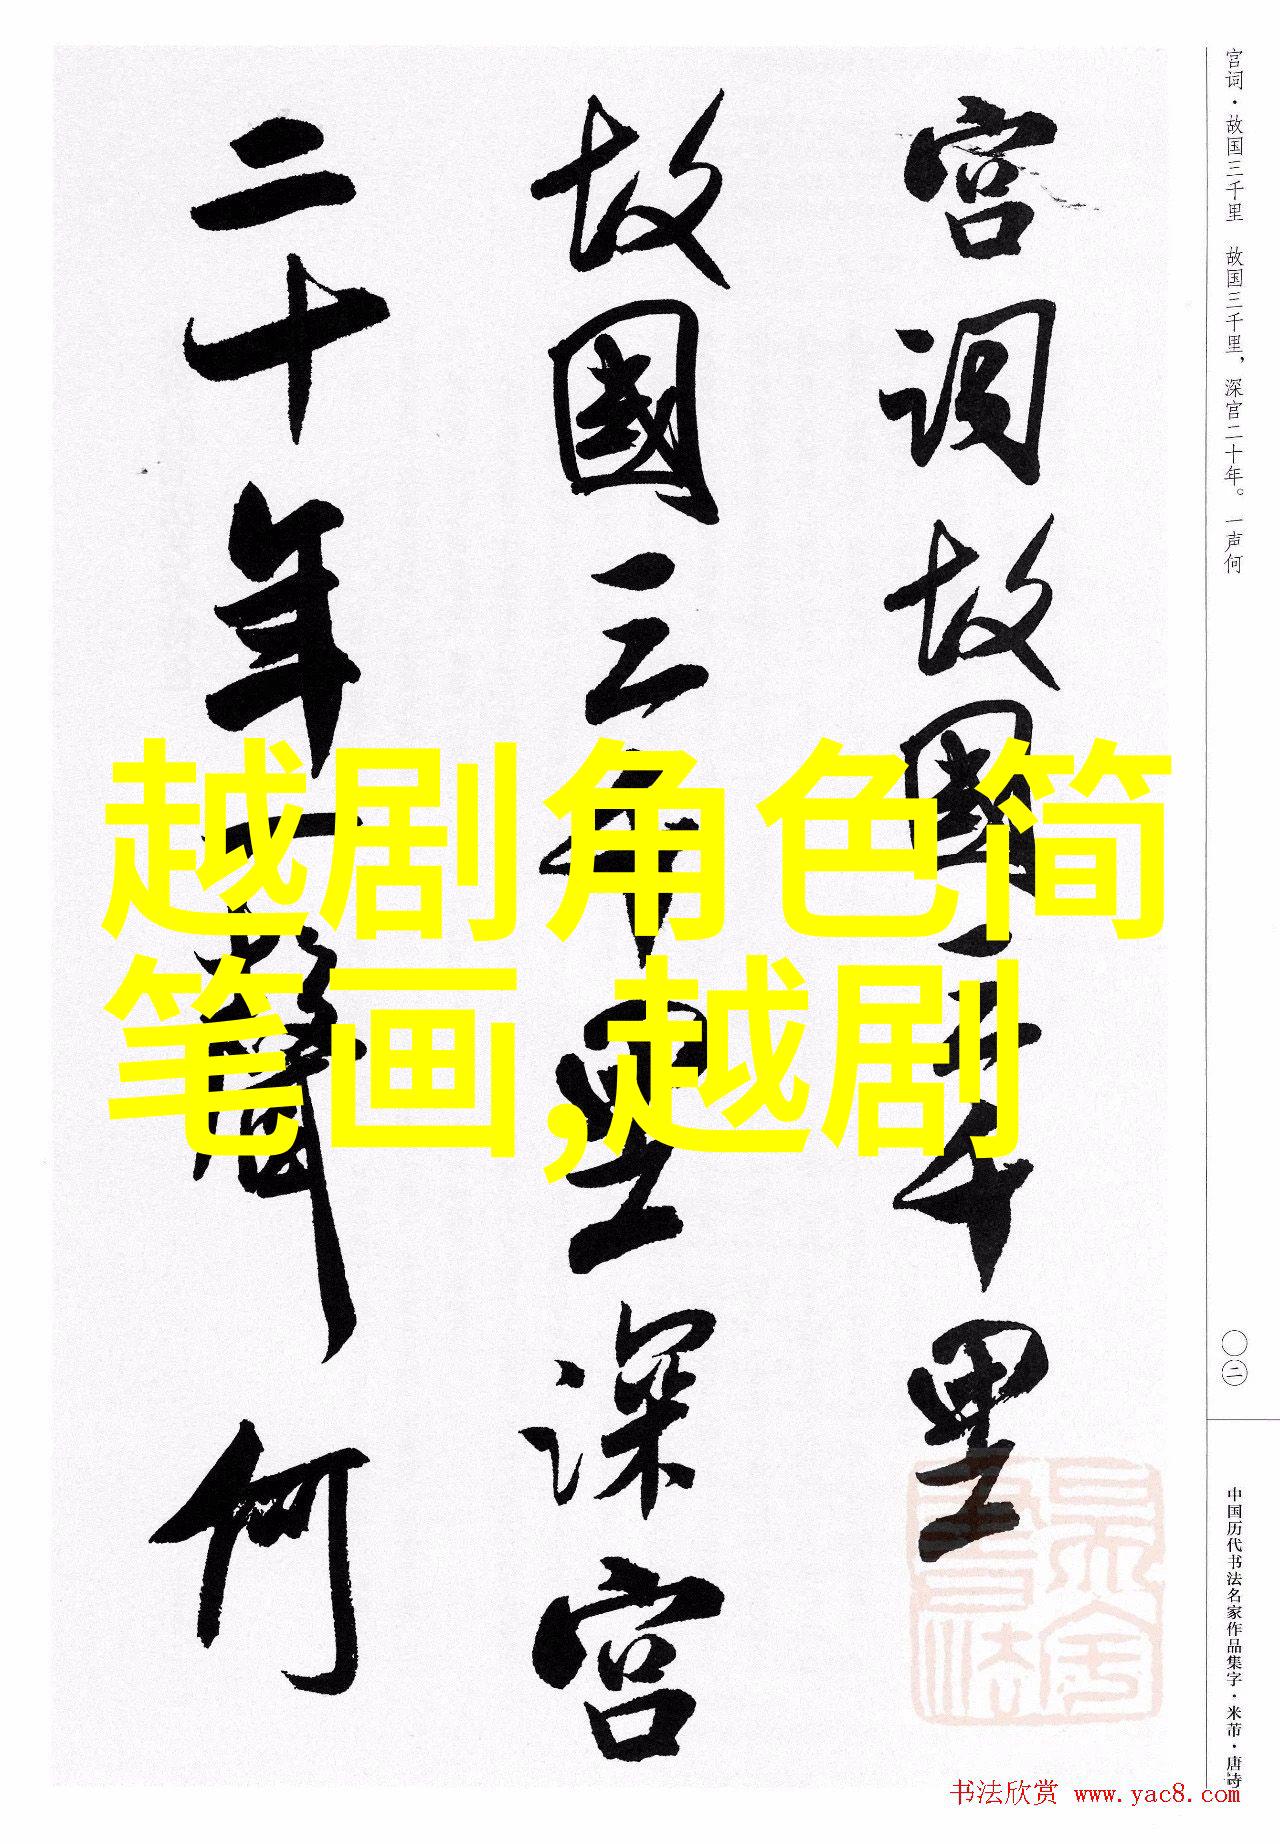 宫词·故国三千里　故国三千里，深宫二十年。一声何
宫词故國三千里
故國三千里深宫
二十年一聲何
越剧角色简
笔画,越剧
〇二
中国历代书法名家作品集字·米芾·唐诗
书法欣赏 www.yac8.com